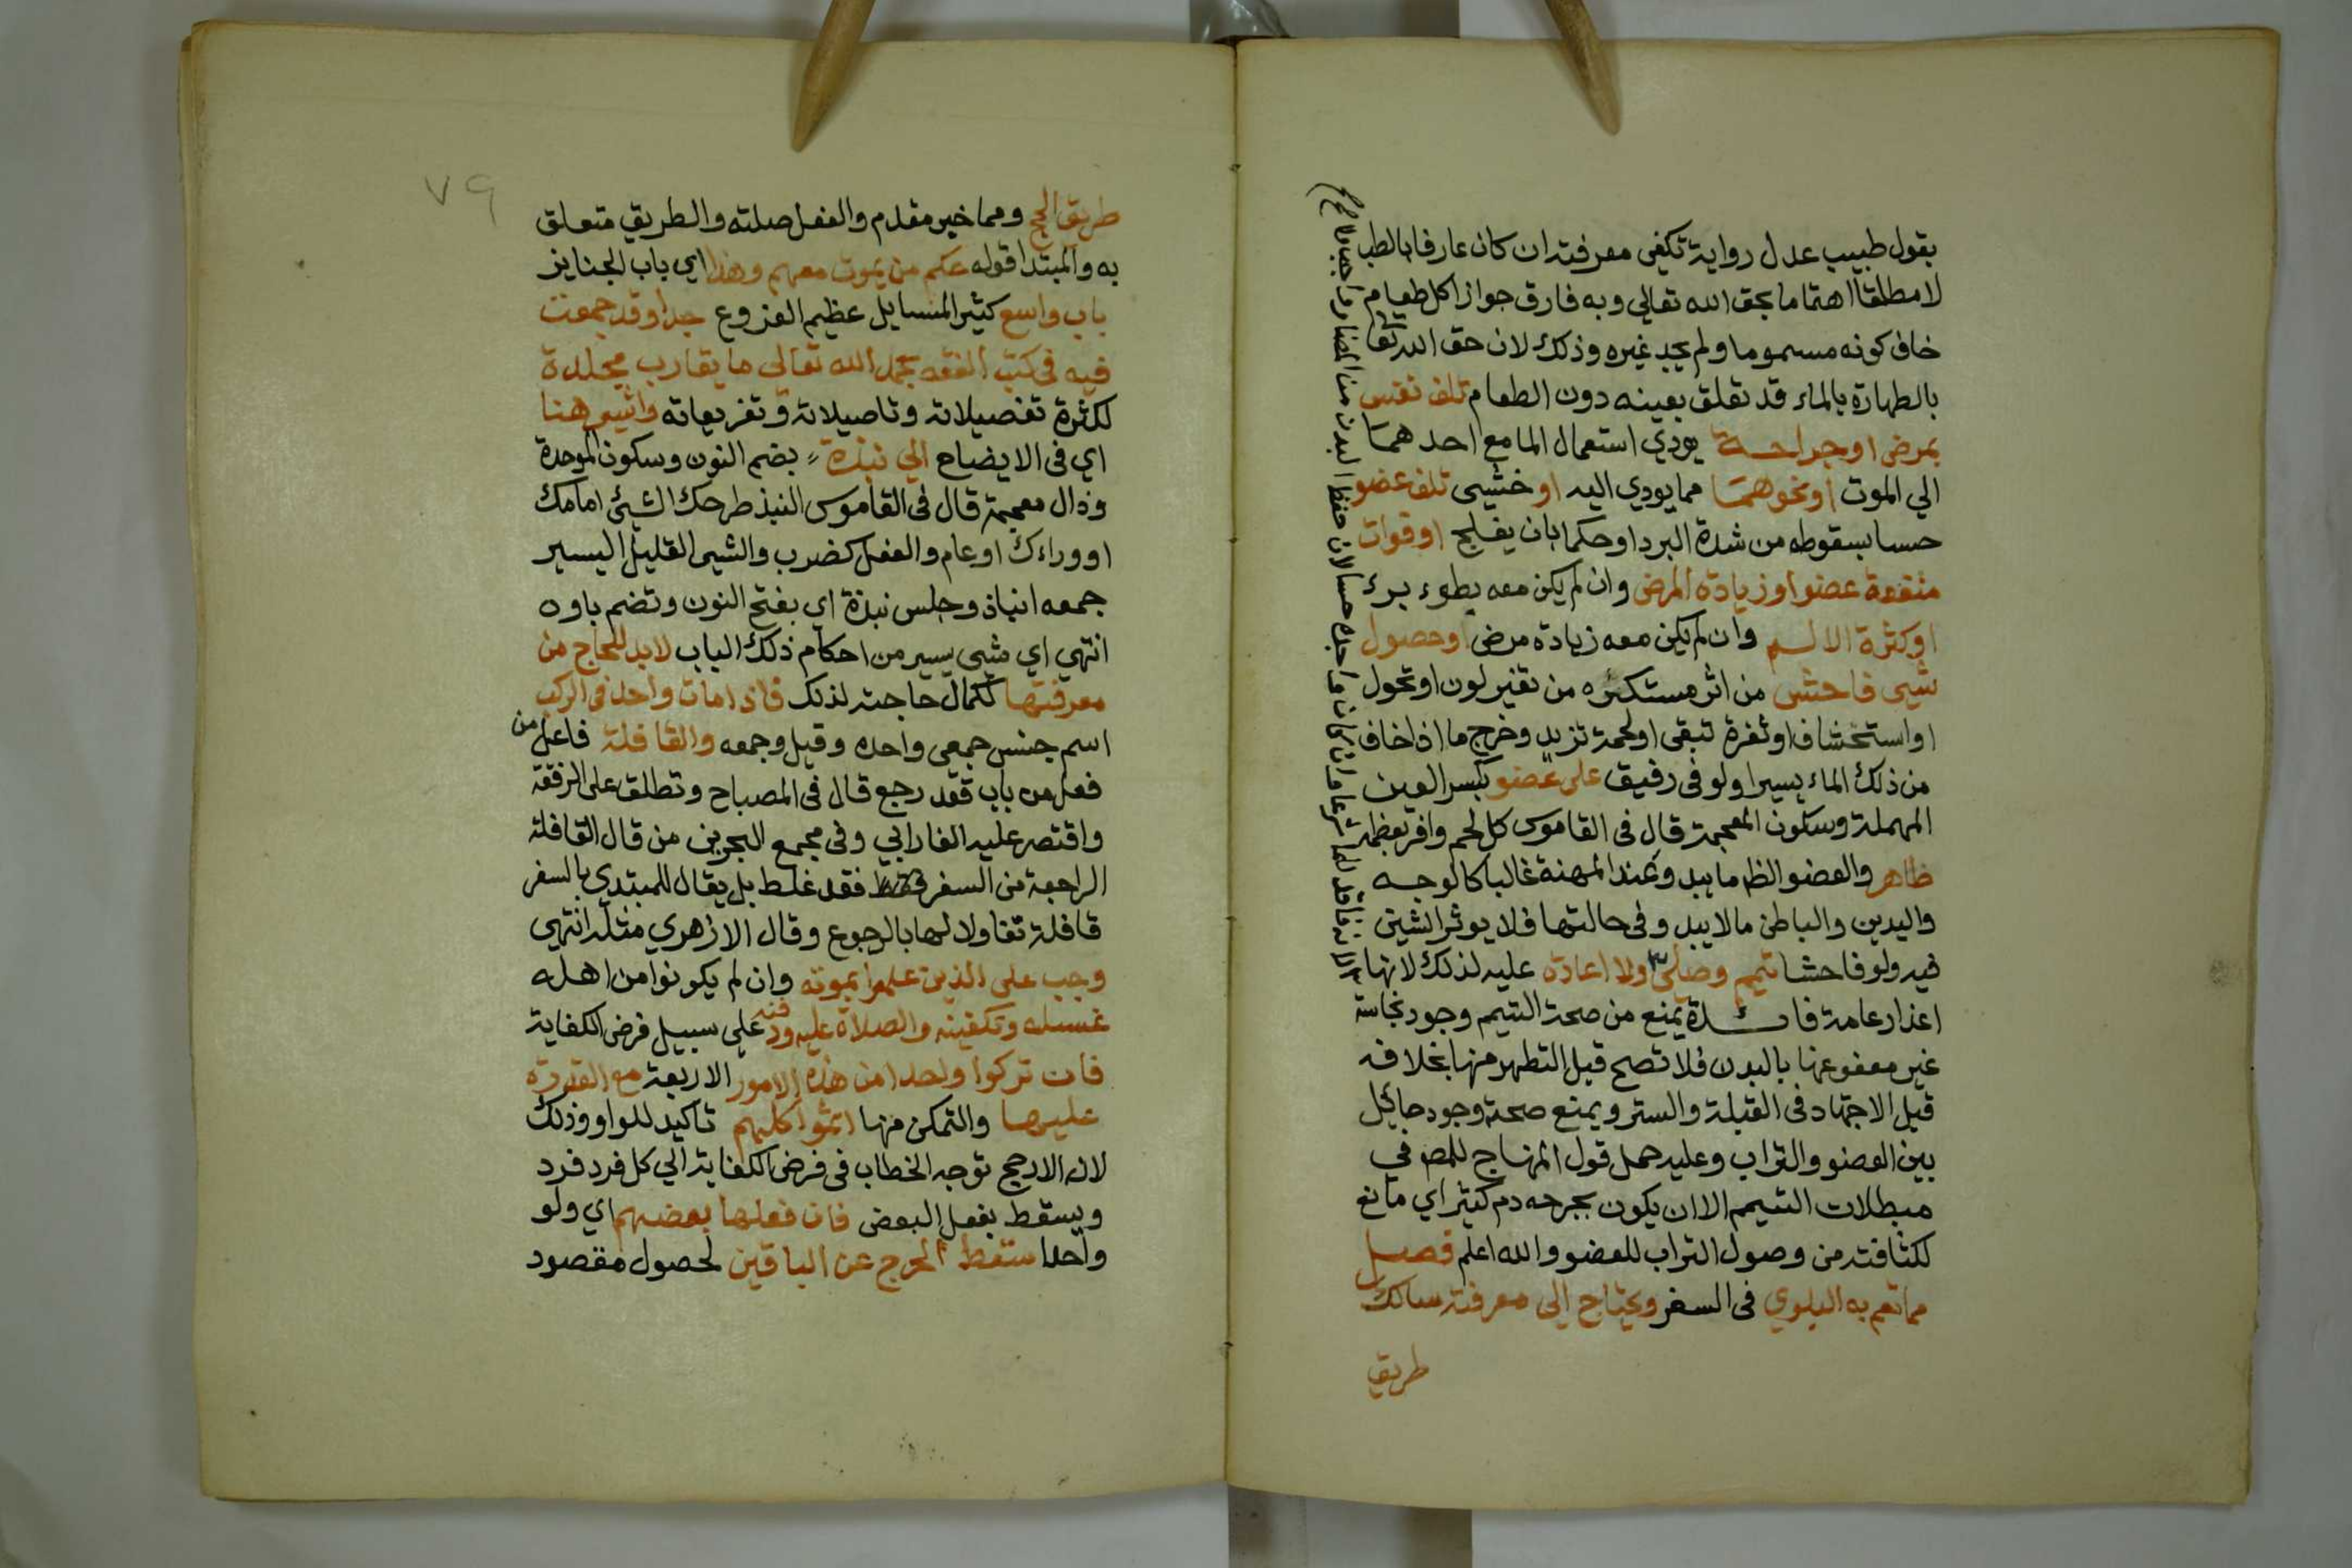 بقول طبيب عدل رواية تكفى معرفته ان كان عارفا بالطب
لا مطلقا اهتماما بحق الله تعالي وبه فارق جواز اكل طعام
خاف كونه مسموما ولم يجد غيره وذلك لان حق الله تعا
بالطهارة بالماء قد تعلق بعينه دون الطعام تلف نفس
بمرض او جراحة يودي استعمال الما مع احدهما
الي الموت او نحوهما مما يودي اليه او خشي تلف عضو
حسا بسقوطه من شدة البرد او حكما بان يفلج او فوات
منفعة عضو او زيادة المرض وان لم يكن معه بطوء برء
او كثرة الالم وان لم يكن معه زيادة مرض او حصول
شيى فاحش من اثر مستكره من تغير لون او نحول
او استحشاف او ثغرة تبقى او لحمة تزيد وخرج ما اذا خاف
من ذلك الماء يسيرا ولو فى رفيق على عضو بكسر العين
المهملة وسكون المعجمة قال فى القاموس كل لحم وافر بعظمه
ظاهر والعضو الظ ما يبدو عند المهنة غالبا كالوجه
واليدين والباطن ما لا يبدو فى حالتها فلا يوثر الشين
فيه ولو فاحشا تيمم وصلى ولا اعادة عليه لذلك لانها
اعذار عامة فائدة يمنع من صحة التيمم وجود نجاسة
غير معفو عنها بالبدن فلا تصح قبل التطهر منها بخلافه
قبل الاجتهاد فى القبلة والستر ويمنع صحته وجود حائل
بين العضو والتراب وعليه حمل قول المنهاج للمص في
مبطلات التيمم الا ان يكون بجرحه دم كثير اي مانع
لكثافته من وصول التراب للعضو والله اعلم فصل
مما تعم به البلوي فى السفر ويحتاج الى معرفته سالك
طريق
٧٩
طريق الحج ومما خبر مقدم والفعل صلته والطريق متعلق
به والمبتدا قوله حكم من يموت معهم وهذا اي باب الجنايز
باب واسع كثير المسايل عظيم الفروع جدا وقد جمعت
فيه فى كتب الفقه بحمد الله تعالى ما يقارب مجلدة
لكثرة تفصيلاته وتاصيلاته وتفريعاته واشير هنا
اي فى الايضاح الي نبذة بضم النون وسكون الموحدة
وذال معجمة قال فى القاموس النبذ طرحك الشيئ امامك
او وراءك او عام والفعل كضرب والشيى القليل اليسير
جمعه انباذ وجلس نبذة اي بفتح النون وتضم باوه
انتهي اي شى يسير من احكام ذلك الباب لابد للحاج من
معرفتها لكمال حاجته لذلك فاذا مات واحد فى الركب
اسم جنس جمعي واحده وقيل وجمعه والقافلة فاعل من
فعل من باب قعد رجع قال فى المصباح وتطلق على الرفقة
واقتصر عليه الفارابي وفى مجمع البحرين من قال القافلة
الراجعة من السفر فقط فقد غلط بل يقال للمبتدي بالسفر
قافلة تفاولا لها بالرجوع وقال الازهري مثله انتهي
وجب على الذين علموا بموته وان لم يكونوا من اهله
غسله وتكفينه والصلاة عليه ودفنه على سبيل فرض الكفاية
فان تركوا واحدا من هذه الامور الاربعة مع القدرة
عليها والتمكن منها اثموا كلهم تاكيد للواو وذلك
لان الارجح توجه الخطاب فى فرض الكفاية الي كل فرد فرد
ويسقط بفعل البعض فان فعلها بعضهم اي ولو
واحدا سقط الحرج عن الباقين لحصول مقصود